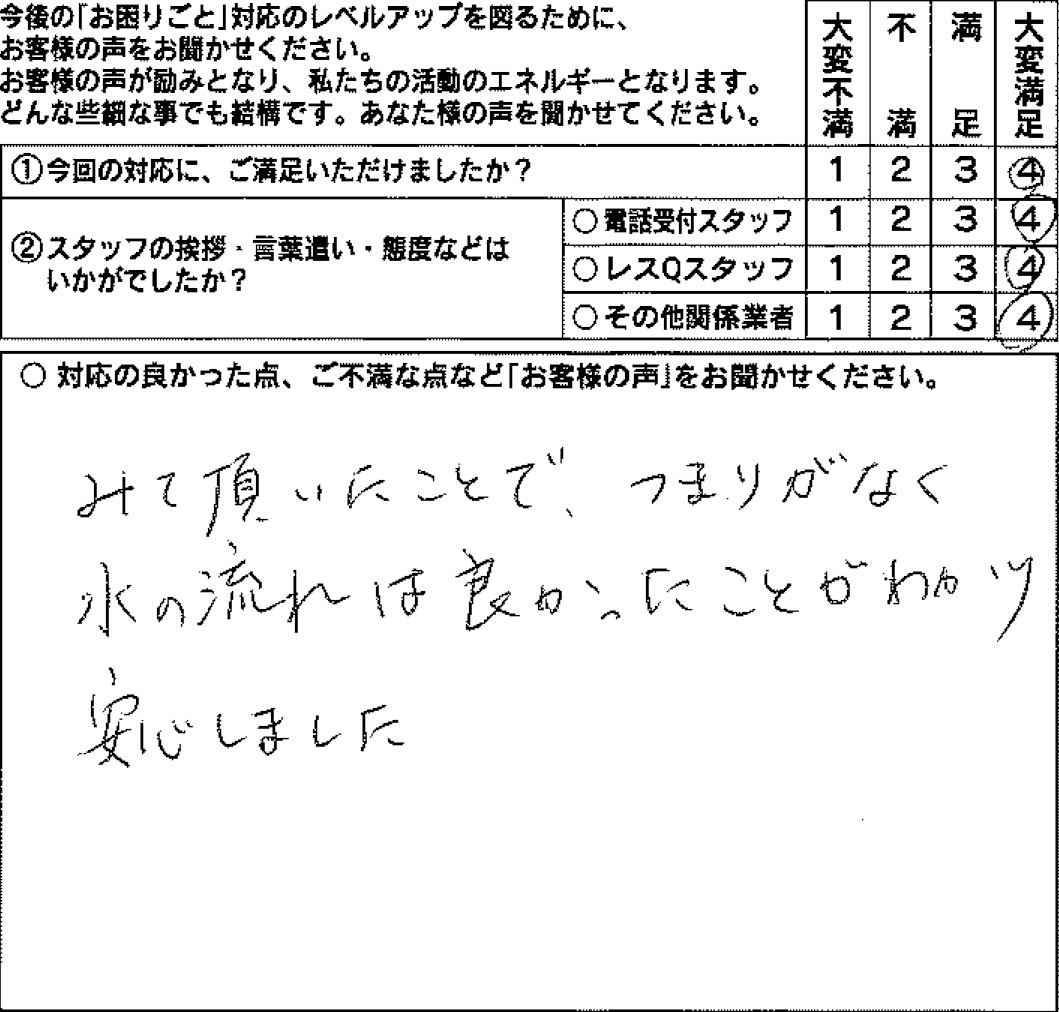 今後の「お困りごと」対応のレベルアップを図るために、
お客様の声をお聞かせください。
お客様の声が励みとなり、私たちの活動のエネルギーとなります。
どんな些細な事でも結構です。あなた様の声を聞かせてください。
大変不満 不満 満足 大変満足
①今回の対応に、ご満足いただけましたか? 1 2 3 4
②スタッフの挨拶・言葉遣い・態度などは
いかがでしたか?
○電話受付スタッフ 1 2 3 4
○レスQスタッフ 1 2 3 4
○その他関係業者 1 2 3 4
○ 対応の良かった点、ご不満な点など「お客様の声」をお聞かせください。
みて頂いたことで、つまりがなく
水の流れは良かったことがわかり
安心しました